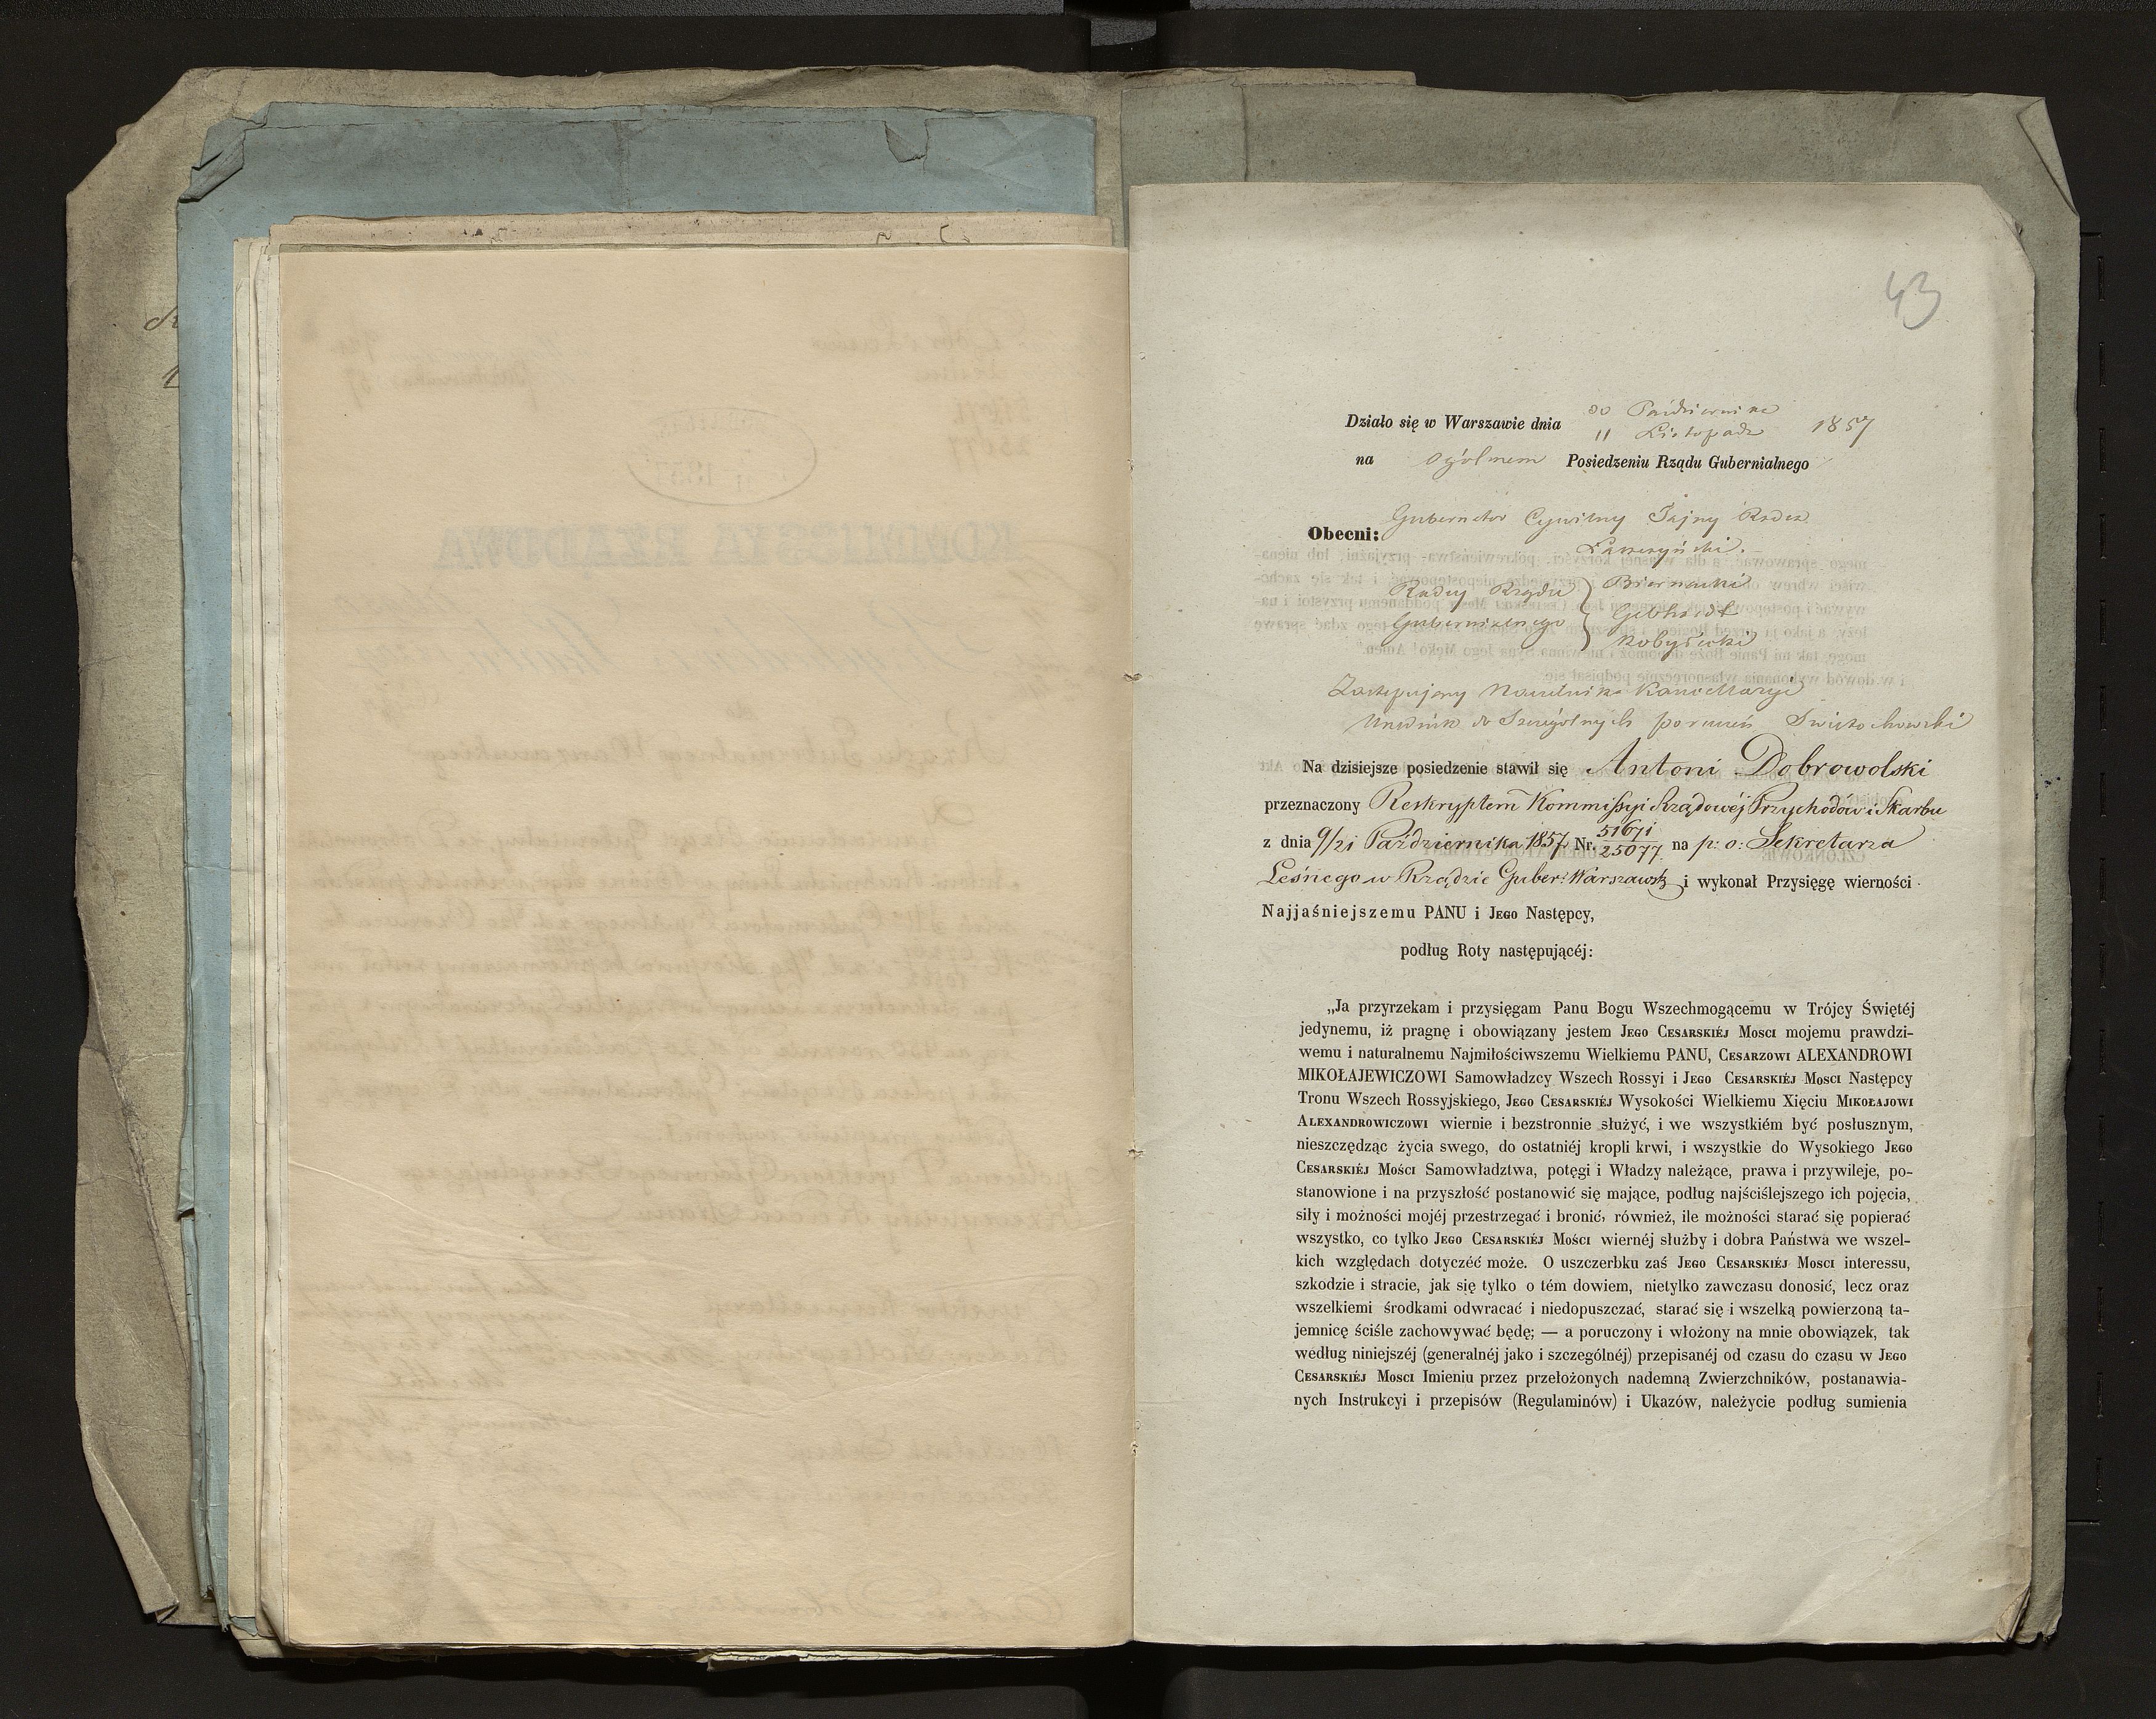 43
Działo się w Warszawie dnia 30 Października / 11 Listopada 1857
na ogólnem Posiedzeniu Rządu Gubernialnego
Obecni: Gubernator Cywilny Tajny Radca
Łaszczyński.
Radcy Rządu } Biernacki
Gubernialnego } Gebhardt
Kobyłecki
Zastępujący Naczelnika Kancellaryi
Urzędnik do Szczególnych poruczeń Świętochowski
Na dzisiejsze posiedzenie stawił się Antoni Dobrowolski
przeznaczony Reskryptem Kommissyi Rządowéj Przychodów i Skarbu
z dnia 9/21 Października 1857 Nr. 51671/25077 na p: o: Sekretarza
Leśnego w Rządzie Guber: Warszawsk i wykonał Przysięgę wierności
Najjaśniejszemu PANU i Jego Następcy,
podług Roty następującéj:
„Ja przyrzekam i przysięgam Panu Bogu Wszechmogącemu w Trójcy Świętéj
jedynemu, iż pragnę i obowiązany jestem Jego Cesarskiéj Mosci mojemu prawdzi-
wemu i naturalnemu Najmiłościwszemu Wielkiemu PANU, Cesarzowi ALEXANDROWI
MIKOŁAJEWICZOWI Samowładzcy Wszech Rossyi i Jego Cesarskiéj Mosci Następcy
Tronu Wszech Rossyjskiego, Jego Cesarskiéj Wysokości Wielkiemu Xięciu Mikołajowi
Alexandrowiczowi wiernie i bezstronnie służyć, i we wszystkiém być posłusznym,
nieszczędząc życia swego, do ostatniéj kropli krwi, i wszystkie do Wysokiego Jego
Cesarskiéj Mości Samowładztwa, potęgi i Władzy należące, prawa i przywileje, po-
stanowione i na przyszłość postanowić się mające, podług najściślejszego ich pojęcia,
siły i możności mojéj przestrzegać i bronić, również, ile możności starać się popierać
wszystko, co tylko Jego Cesarskiéj Mości wiernéj służby i dobra Państwa we wszel-
kich względach dotyczéć może. O uszczerbku zaś Jego Cesarskiéj Mosci interessu,
szkodzie i stracie, jak się tylko o tém dowiem, nietylko zawczasu donosić, lecz oraz
wszelkiemi środkami odwracać i niedopuszczać, starać się i wszelką powierzoną ta-
jemnicę ściśle zachowywać będę; — a poruczony i włożony na mnie obowiązek, tak
według niniejszéj (generalnéj jako i szczególnéj) przepisanéj od czasu do czasu w Jego
Cesarskiéj Mosci Imieniu przez przełożonych nademną Zwierzchników, postanawia-
nych Instrukcyi i przepisów (Regulaminów) i Ukazów, należycie podług sumienia